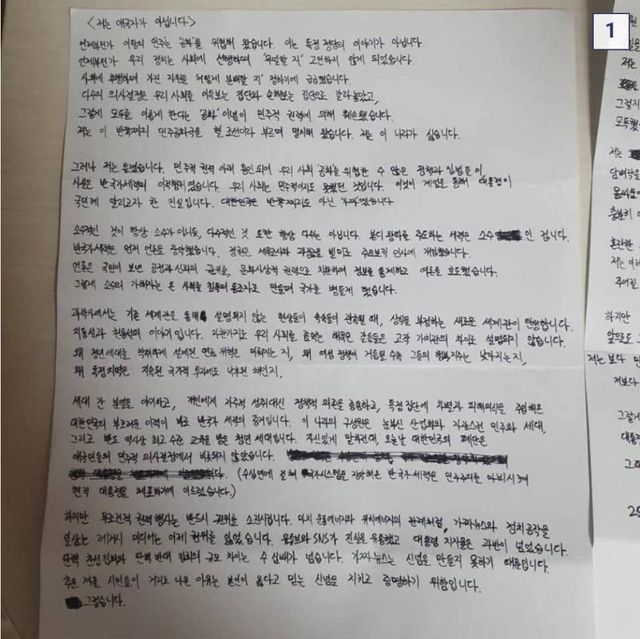 1
<저는 애국자가 아닙니다>
언제부턴가 이땅의 민주는 공화를 위협해 왔습니다. 이는 특정 정당의 이야기가 아닙니다.
언제부턴가 우리 정치는 사회에 선행하며 '무엇할 지' 고민하지 않게 되었습니다.
사회에 후행하며 가진 자원을 어떻게 분배할 지' 정하기에 급급했습니다.
다수의 의사결정은 우리 사회를 이득보는 집단과 손해보는 집단으로 갈라놓았고,
그렇게 모두를 이롭게 한다는 공화' 이념이 민주적 권력에 의해 훼손됐습니다.
저는 이 반쪽짜리 민주공화국을 헬조선이라 부르며 멸시해 왔습니다. 저는 이 나라가 싫습니다.
그러나 저는 틀렸습니다. 민주적 권력 아래 용인되며 우리 사회 공화를 위협한 수 많은 정책과 입법들이
사실은 반국가세력의 이적행위였습니다. 우리 사회는 민주적이지도 못했던 것입니다. 이것이 계엄을 통해 대통령이
국민께 알리고자 한 진실입니다. 대한민국은 반쪽짜리도 아닌 가짜였습니다
소수적인 것이 항상 소수가 아니듯, 다수적인 것 또한 항상 다수는 아닙니다. 본디 왕좌를 주도하는 세력은 소수 인 겁니다.
반국가세력은 먼저 언론을 장악했습니다. 정권은 세무조사와 과징금을 빌미로 주요보직 인사에 개입했습니다.
언론은 국민이 보낸 공정과 신뢰의 권위를, 문화사상적 권력으로 치환하여 정보를 통제하고 여론을 호도했습니다.
그렇게 소수의 가해자는 온 사회를 침묵의 동조자로 만들며 국가를 병들게 했습니다.
과학사에서는 기존 세계관을 통해 설명되지 않는 현상들이 속속들이 관찰될 때, 상식을 부정하는 새로운 세계관이 탄생합니다.
지동설과 천동설의 이야기입니다. 마찬가지로 우리 사회를 좀먹는 해묵은 갈등들은 고작 가치관의 차이로 설명되지 않습니다.
왜 청년세대를 착취하게 설계된 연금 개혁은 미뤄지는 지, 왜 여성 정책이 거듭될 수록 그들의 행복지수는 낮아지는지,
왜 특정지역은 지속된 국가적 투자에도 낙후된 채인지.
세대 간 분열을 야기하고, 개인에게 자주적 성취 대신 정책적 의존을 종용하고, 특정 집단에 차별과 피해의식을 주입해온
대한민국의 부조리는 이적이 바로 반국가 세력의 증거입니다. 이 나라의 구성원은 눈부신 산업화와 자랑스런 민주화 세대,
그리고 반도 역사상 최고 수준 교육을 받은 청년 세대입니다. 자신있게 말하건대, 오늘날 대한민국의 폐단은
애국민들의 민주적 의사결정에서 비롯되지 않았습니다.
(수십년에 걸쳐 국가시스템을 장악해온 반국가세력은 민주주의를 마비시켜
현직 대통령을 체포하기에 이르렀습니다.)
하지만 무조건적 권력행사는 반드시 권위를 소진시킵니다. 마치 운동에너지와 위치에너지의 관계처럼, 가짜뉴스와 정치공작을
일삼는 레거시 미디어는 이제 권위를 잃었습니다. 유튜브와 SNS가 진실을 유통했고 대통령 지지율은 과반이 넘었습니다.
탄핵 찬성집회와 탄핵 반대 집회의 규모 차이는 수 십배가 넘습니다. 가짜뉴스는 신념을 만들지 못하기 때문입니다.
추운 겨울 시민들이 거리로 나온 이유는 본인이 옳다고 믿는 신념을 지키고 증명하기 위함입니다.
그렇습니다.